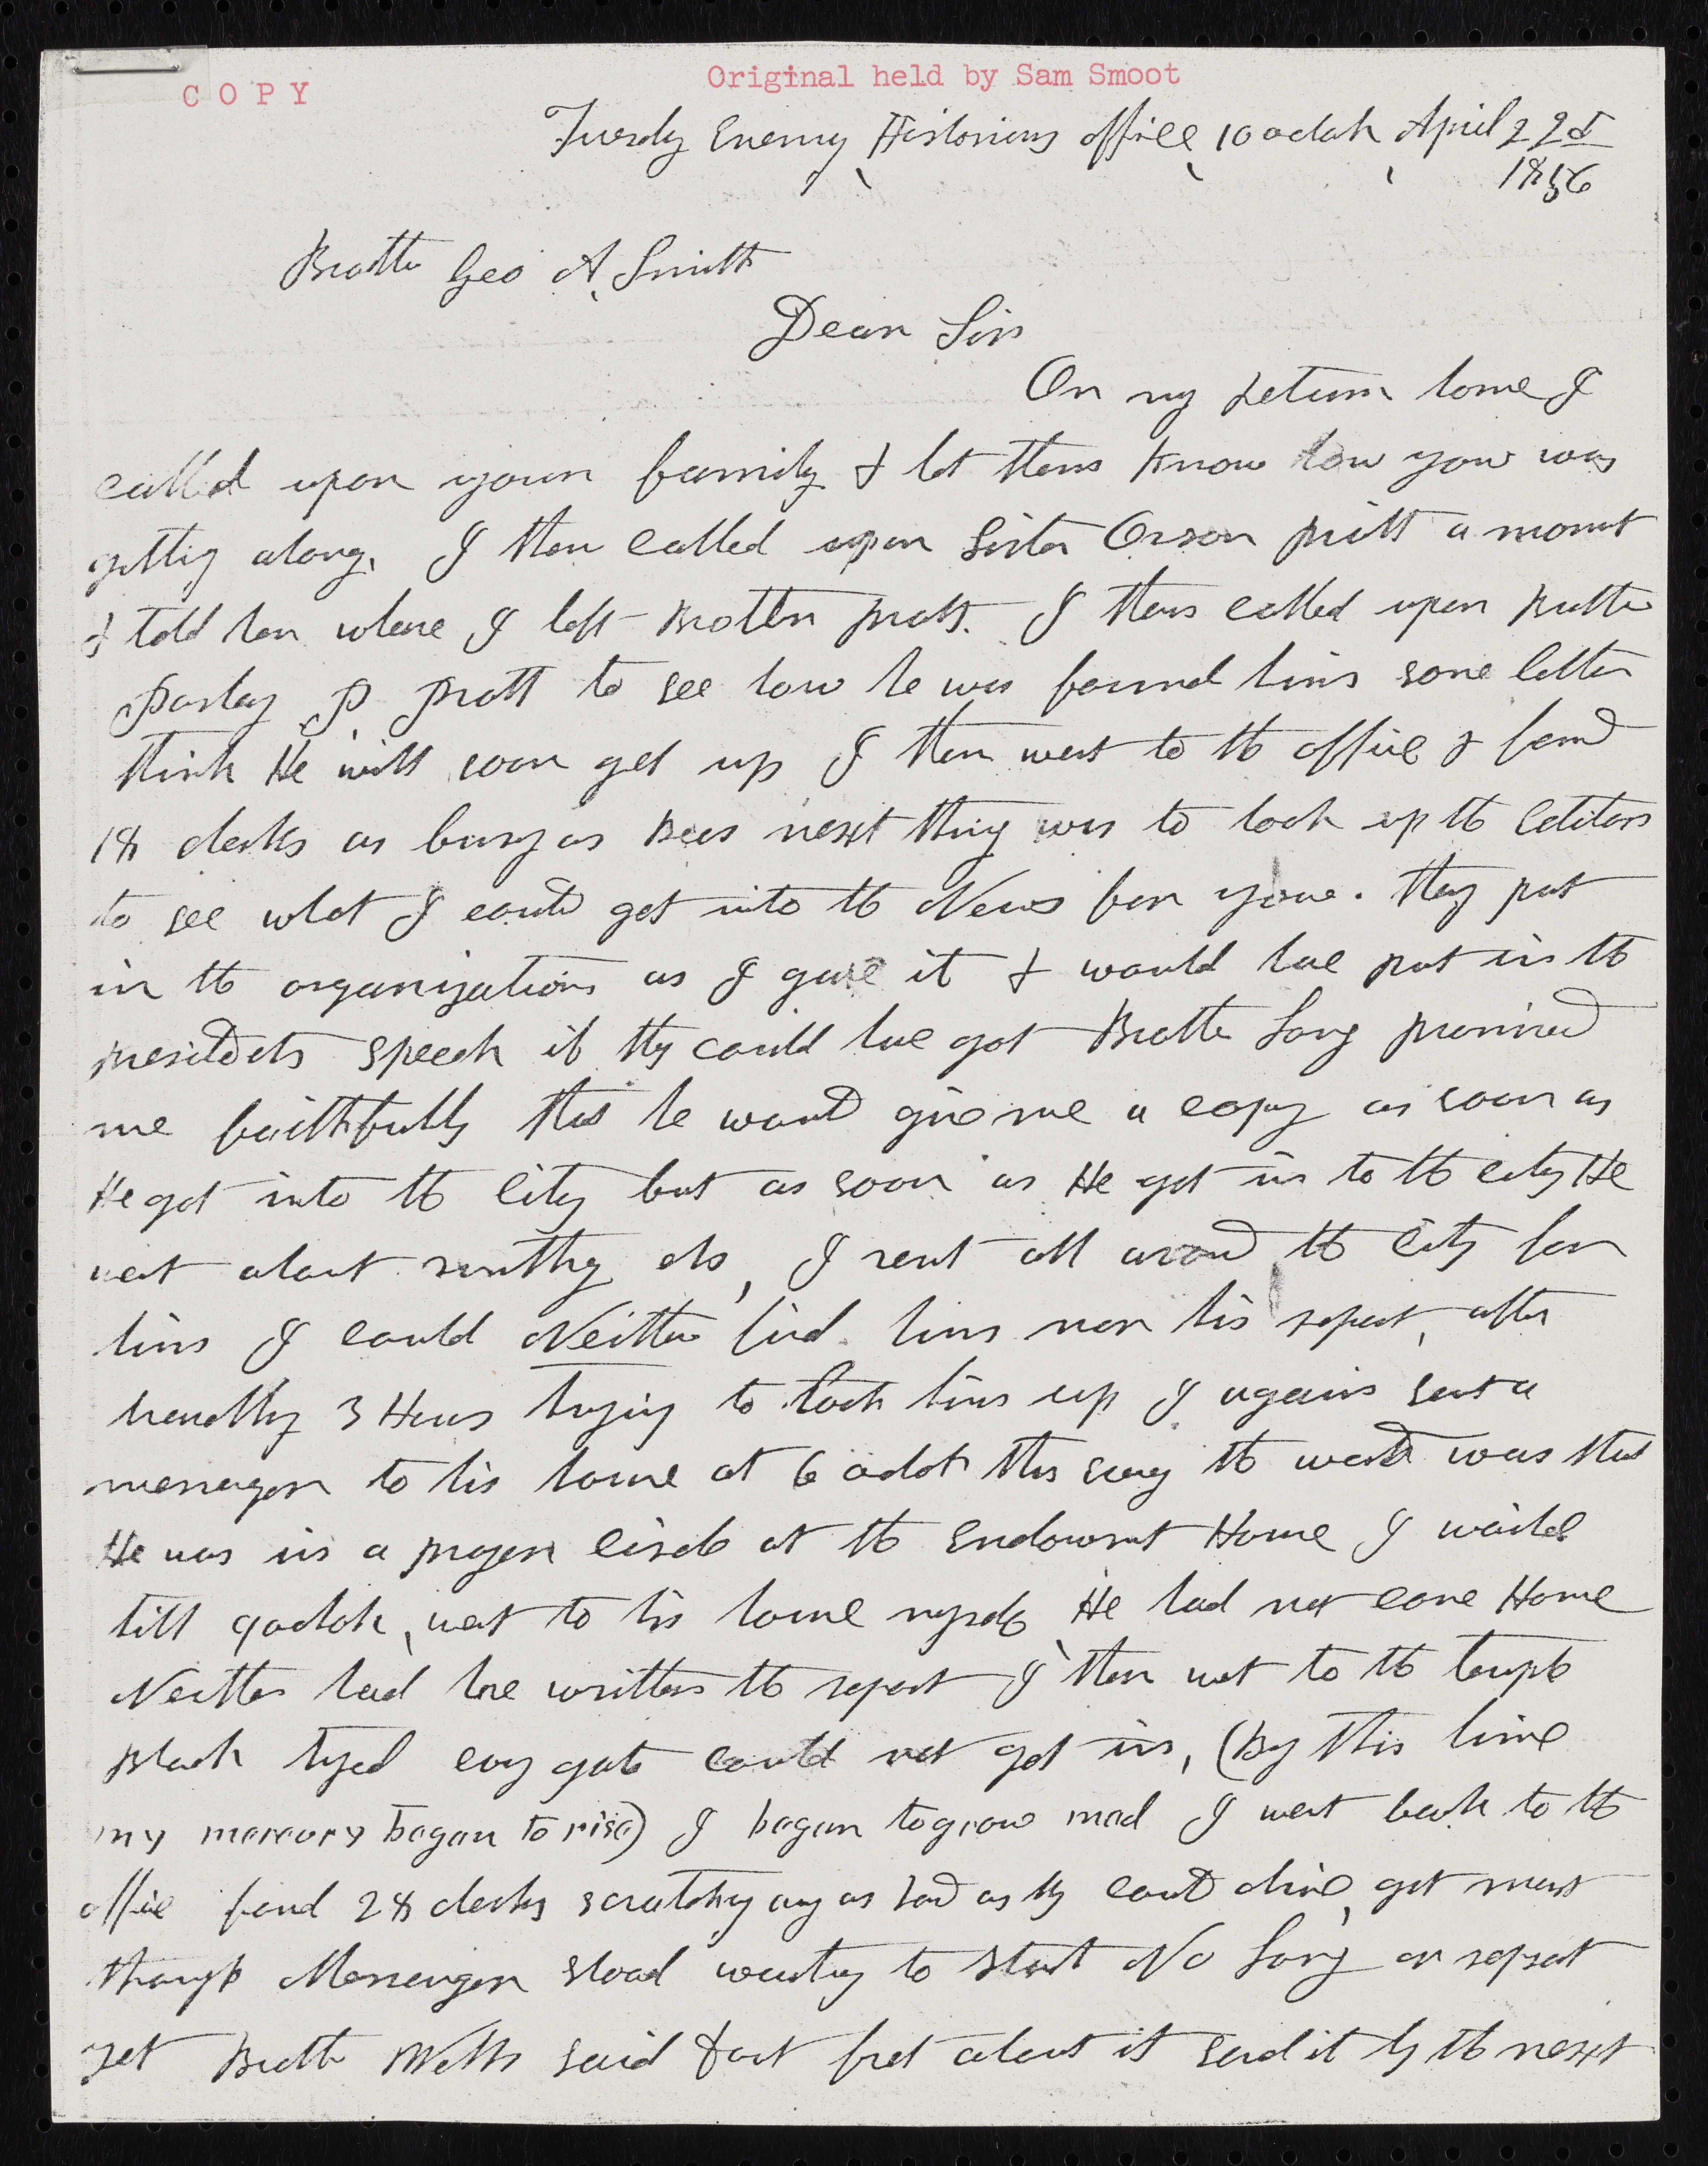 COPY
Original held by Sam Smoot
Tuesdy Eveny Historians office 10 oclok April 22d
1856
Brother Geo A, Smith
Dear Sir
On my return home I
called upon your family & let them know how you was
getting along. I then called upon Sister Orson Pratt a moment
& told her where I left Brother Pratt. I then called upon Brother
Parley P. Pratt to see how he was found him some better
think He will soon get up I then went to the office & found
18 clerks as busy as Bees next thing was to look up the Editors
to see what I could get into the News for you. they put
in the organization as I gave it & would have put in the
presidets speech if they could have got Brother Long promised
me faithfully that he would give me a copy as soon as
He got into the City but as soon as He got in to the city He
went about somthing els, I sent all around the City for
him I could Neither find him nor his report, after
3 Hours trying to look him up I again sent a
messenger to his house at 6 oclok the word was that
He was in a prayer circle at the Endowmt House I waited
till 9 oclok, went to his house myself He had not come Home
Neither had he written the report I then went to the temple
Block tryed evry gate could not get in, (By this time
my mercury began to rise) I began to grow mad I went back to the
office found 28 clerks scratching away as hard as they could drive, got most
through Messenger stood waiting to start No Long or report
yet Brother Wells said dont fret about it send it by the next